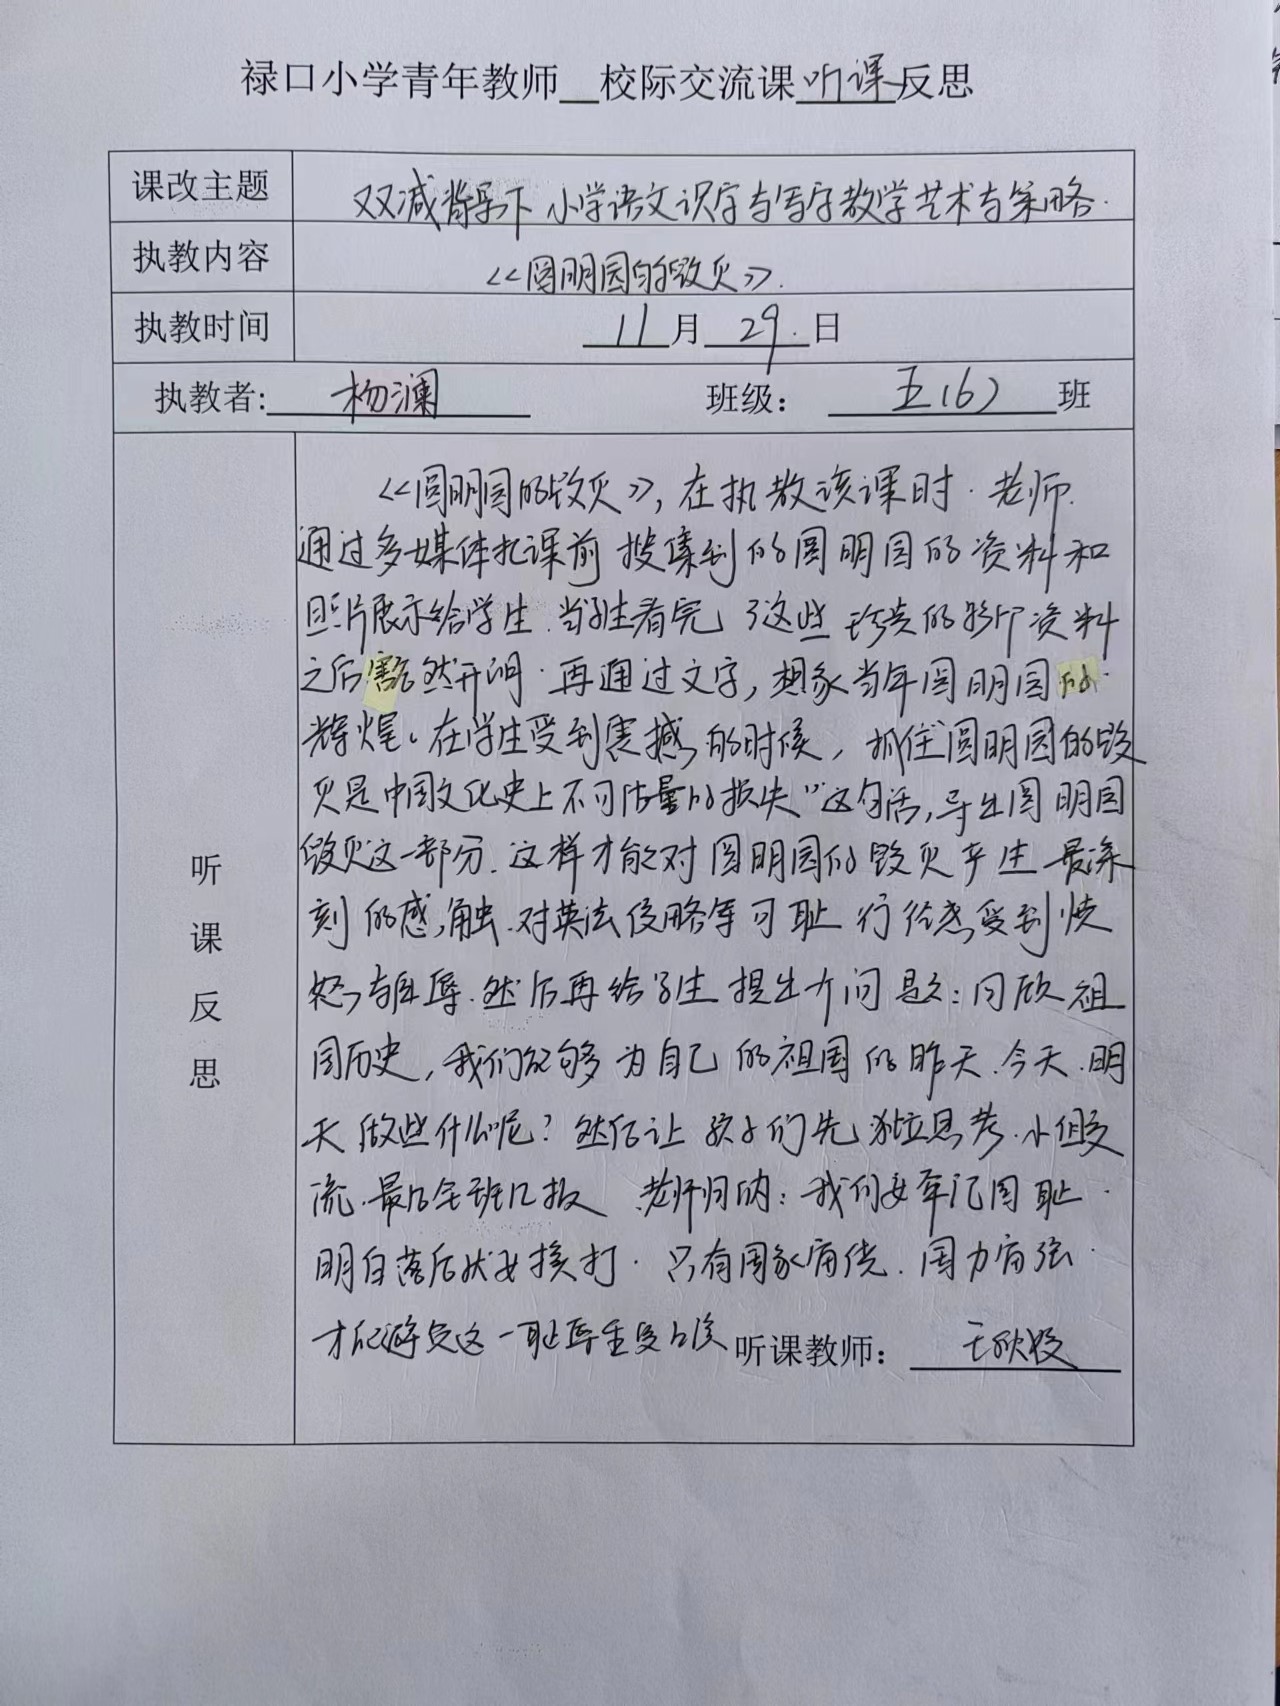 禄口小学青年教师 校际交流课听课反思
课改主题 双减背景下小学语文识字与写字教学艺术与策略.
执教内容 《圆明园的毁灭》.
执教时间 11月29.日
执教者: 杨澜 班级： 五(6)班
听课反思
《圆明园的毁灭》,在执教该课时.老师.
通过多媒体把课前搜集到的圆明园的资料和
照片展示给学生.当学生看完了这些珍贵的影印资料
之后豁然开朗.再通过文字,想象当年圆明园的
辉煌。在学生受到震撼的时候,抓住"圆明园的毁
灭是中国文化史上不可估量的损失"这句话,导出圆明园
毁灭这一部分.这样才能对圆明园的毁灭产生最深
刻的感触.对英法侵略军可耻行径感受到愤
怒与屈辱.然后再给学生提出个问题:回顾祖
国历史,我们能够为自己的祖国的昨天.今天.明
天做些什么呢?然后让孩子们先独立思考.小组交
流.最后全班汇报 老师归纳:我们要牢记国耻.
明白落后就要挨打.只有国家富优.国力富强.
才能避免这一耻辱重复 听课教师：